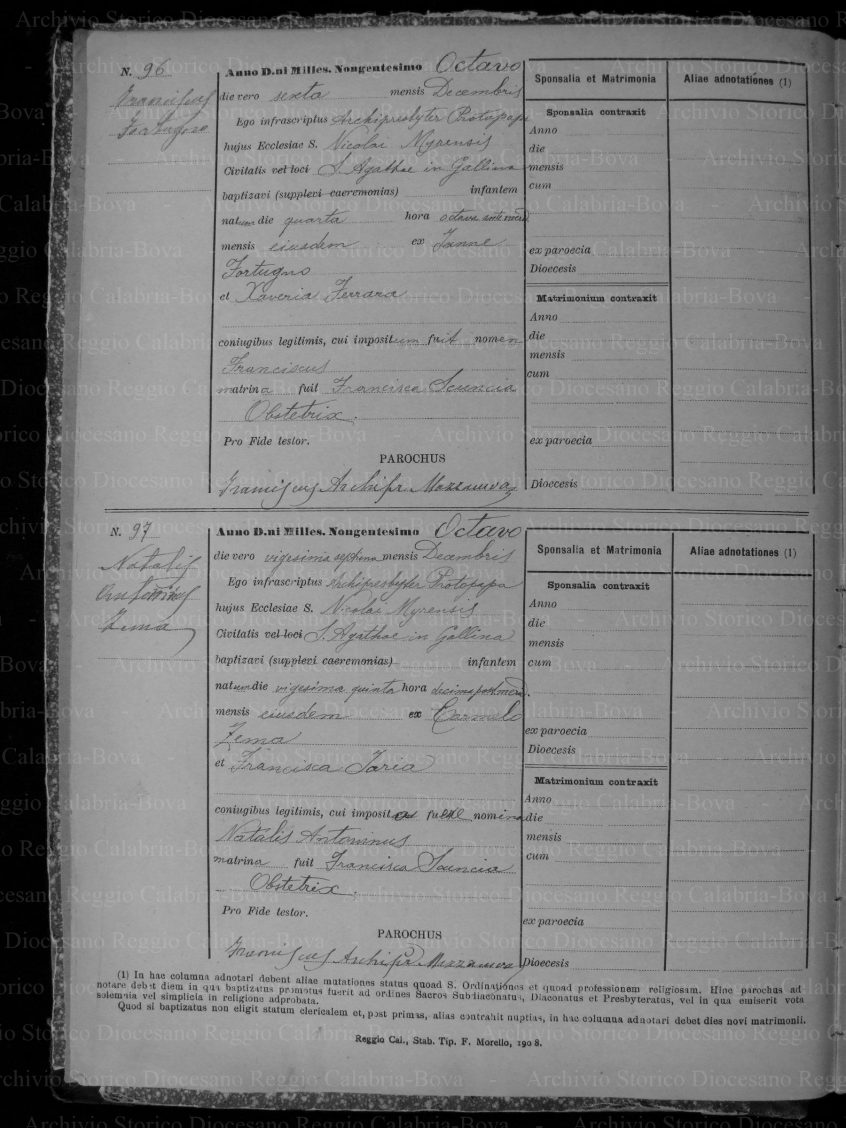 N. 96
Franciscus
Fortugno
Anno D.ni Milles. Nongentesimo Octavo
die vero sexta mensis Decembris
Ego infrascriptus Archipresbyter Protopapa
hujus Ecclesiae S. Nicolai Myrensis
Civitatis vel loci S. Agathae in Gallina
baptizavi (supplevi caeremonias) infantem
natum die quarta hora octava ante merid.
mensis eiusdem ex Ianne
Fortugno
et Xaveria Ferrara
coniugibus legitimis, cui impositum fuit nomen
Franciscus
matrina fuit Francisca Scuncia
Obstetrix.
Pro Fide testor.
PAROCHUS
Franciscus Archipr
Sponsalia et Matrimonia
Sponsalia contraxit
Anno
die
mensis
cum
ex paroecia
Dioecesis
Matrimonium contraxit
Anno
die
mensis
cum
ex paroecia
Dioecesis
Aliae adnotationes (1)
N. 97
Natalis
Antoninus
Zema
Anno D.ni Milles. Nongentesimo Octavo
die vero vigesima septima mensis Decembris
Ego infrascriptus Archipresbyter Protopapa
hujus Ecclesiae S. Nicolai Myrensis
Civitatis vel loci S. Agathae in Gallina
baptizavi (supplevi caeremonias) infantem
natum die vigesima quinta hora decima postmerid.
mensis eiusdem ex Carmelo
Zema
et Francisca Laria
coniugibus legitimis, cui imposita fuere nomina
Natalis Antoninus
matrina fuit Francisca Scuncia
Obstetrix.
Pro Fide testor.
PAROCHUS
Franciscus Archipr
Sponsalia et Matrimonia
Sponsalia contraxit
Anno
die
mensis
cum
ex paroecia
Dioecesis
Matrimonium contraxit
Anno
die
mensis
cum
ex paroecia
Dioecesis
Aliae adnotationes (1)
(1) In hac columna adnotari debent aliae mutationes status quoad S. Ordinationes et quoad professionem religiosam. Hinc parochus ad
notare debet diem in qua baptizatus promotus fuerit ad ordines Sacros Subdiaconatus, Diaconatus et Presbyteratus, vel in qua emiserit vota
solemnia vel simplicia in religione adprobata.
Quod si baptizatus non eligit statum clericalem et, post primas, alias contrahit nuptias, in hac columna adnotari debet dies novi matrimonii.
Reggio Cal., Stab. Tip. F. Morello, 1908.
Archivio Storico Diocesano Reggio Calabria-Bova